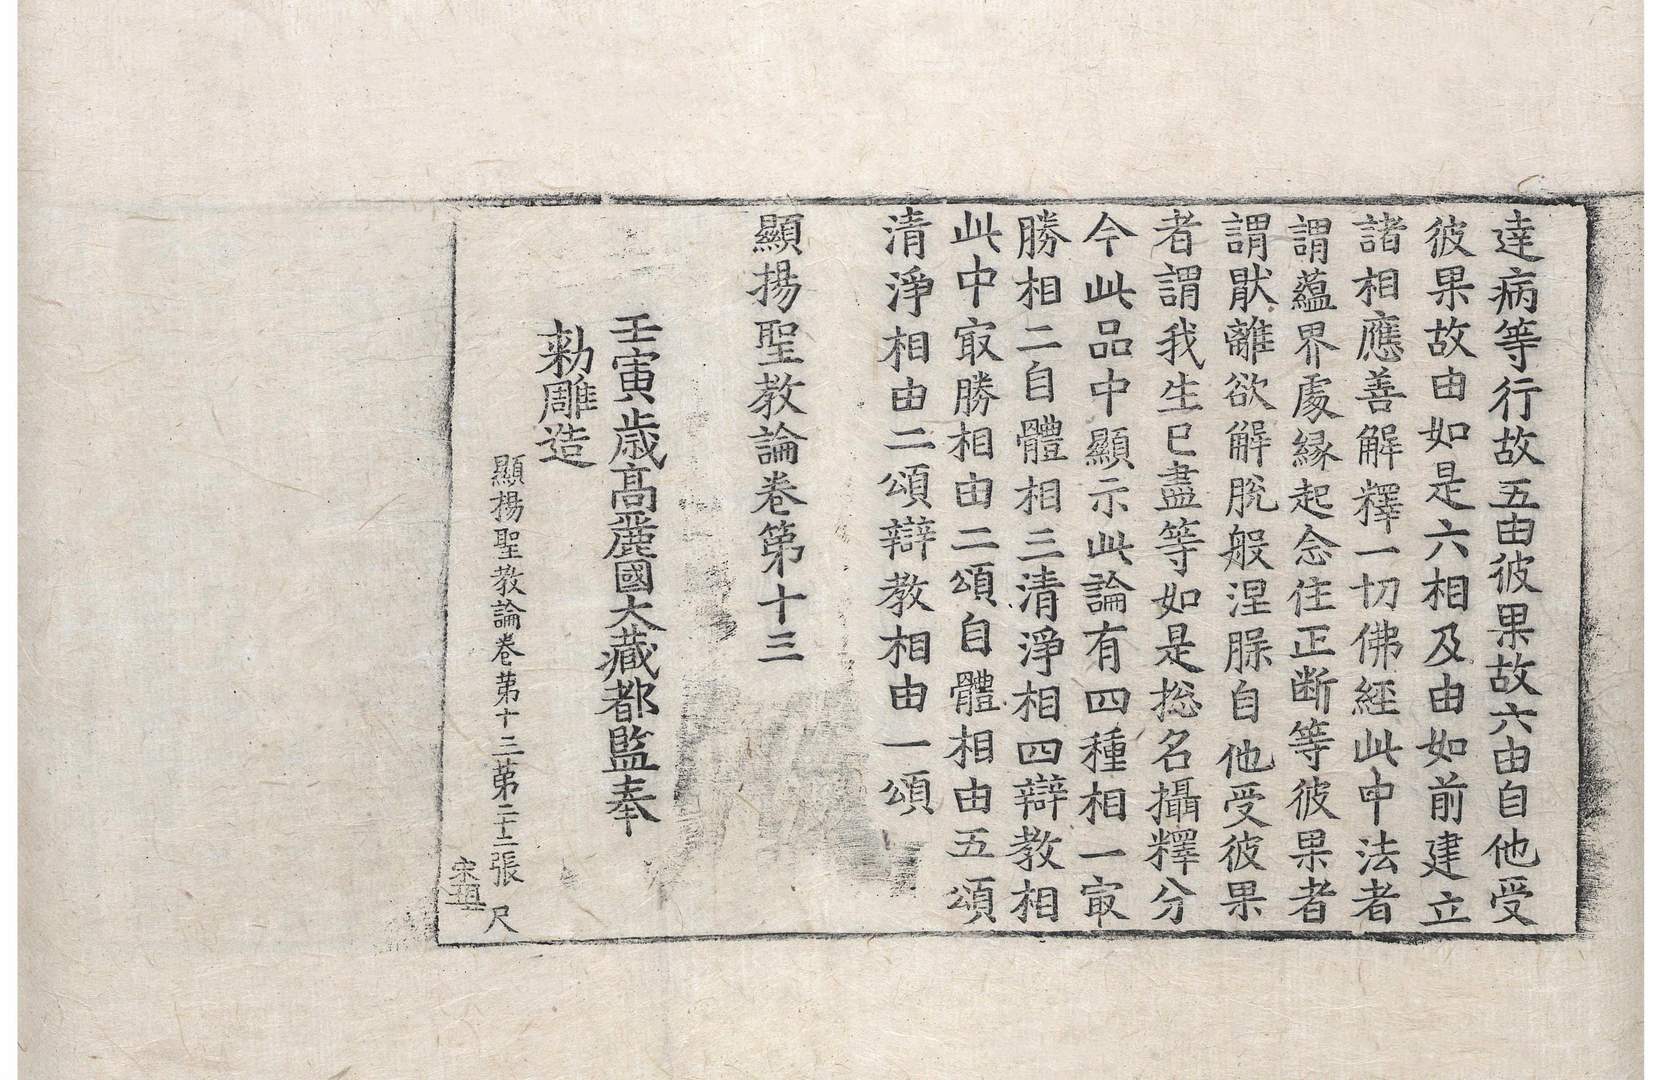 達病等行故五由彼果故六由自他受
彼果故由如是六相及由如前建立
諸相應善解釋一切佛經此中法者
謂蘊界處緣起念住正斷等彼果者
謂猒離欲解脫般涅槃自他受彼果
者謂我生已盡等如是捴名攝釋分
今此品中顯示此論有四種相一㝡
勝相二自體相三清淨相四辯教相
此中㝡勝相由二頌自體相由五頌
清淨相由二頌辯教相由一頌
顯揚聖教論卷第十三
壬寅歲高麗國大藏都監奉
勅雕造
顯揚聖教論卷第十三 第二十二張 尺